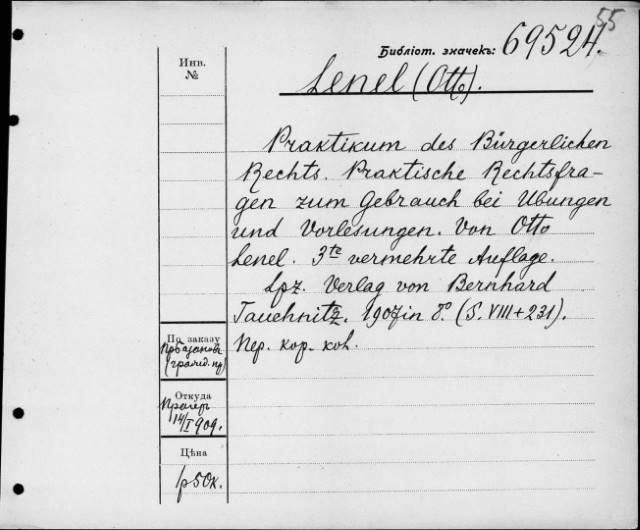 55
Библіот. значекъ: 69524.
Инв.
№
Lenel (Otto).
Praktikum des Bürgerlichen
Rechts. Praktische Rechtsfra-
gen zum Gebrauch bei Übungen
und Vorlesungen. Von Otto
Lenel. 3te vermehrte Auflage.
Lpz. Verlag von Bernhard
Tauchnitz. 1907 in 8º. (S. VIII + 231).
Пер. кор. кож.
По заказу
(гражд. пр)
Откуда
14/I 1909.
Цѣна
1р50к.